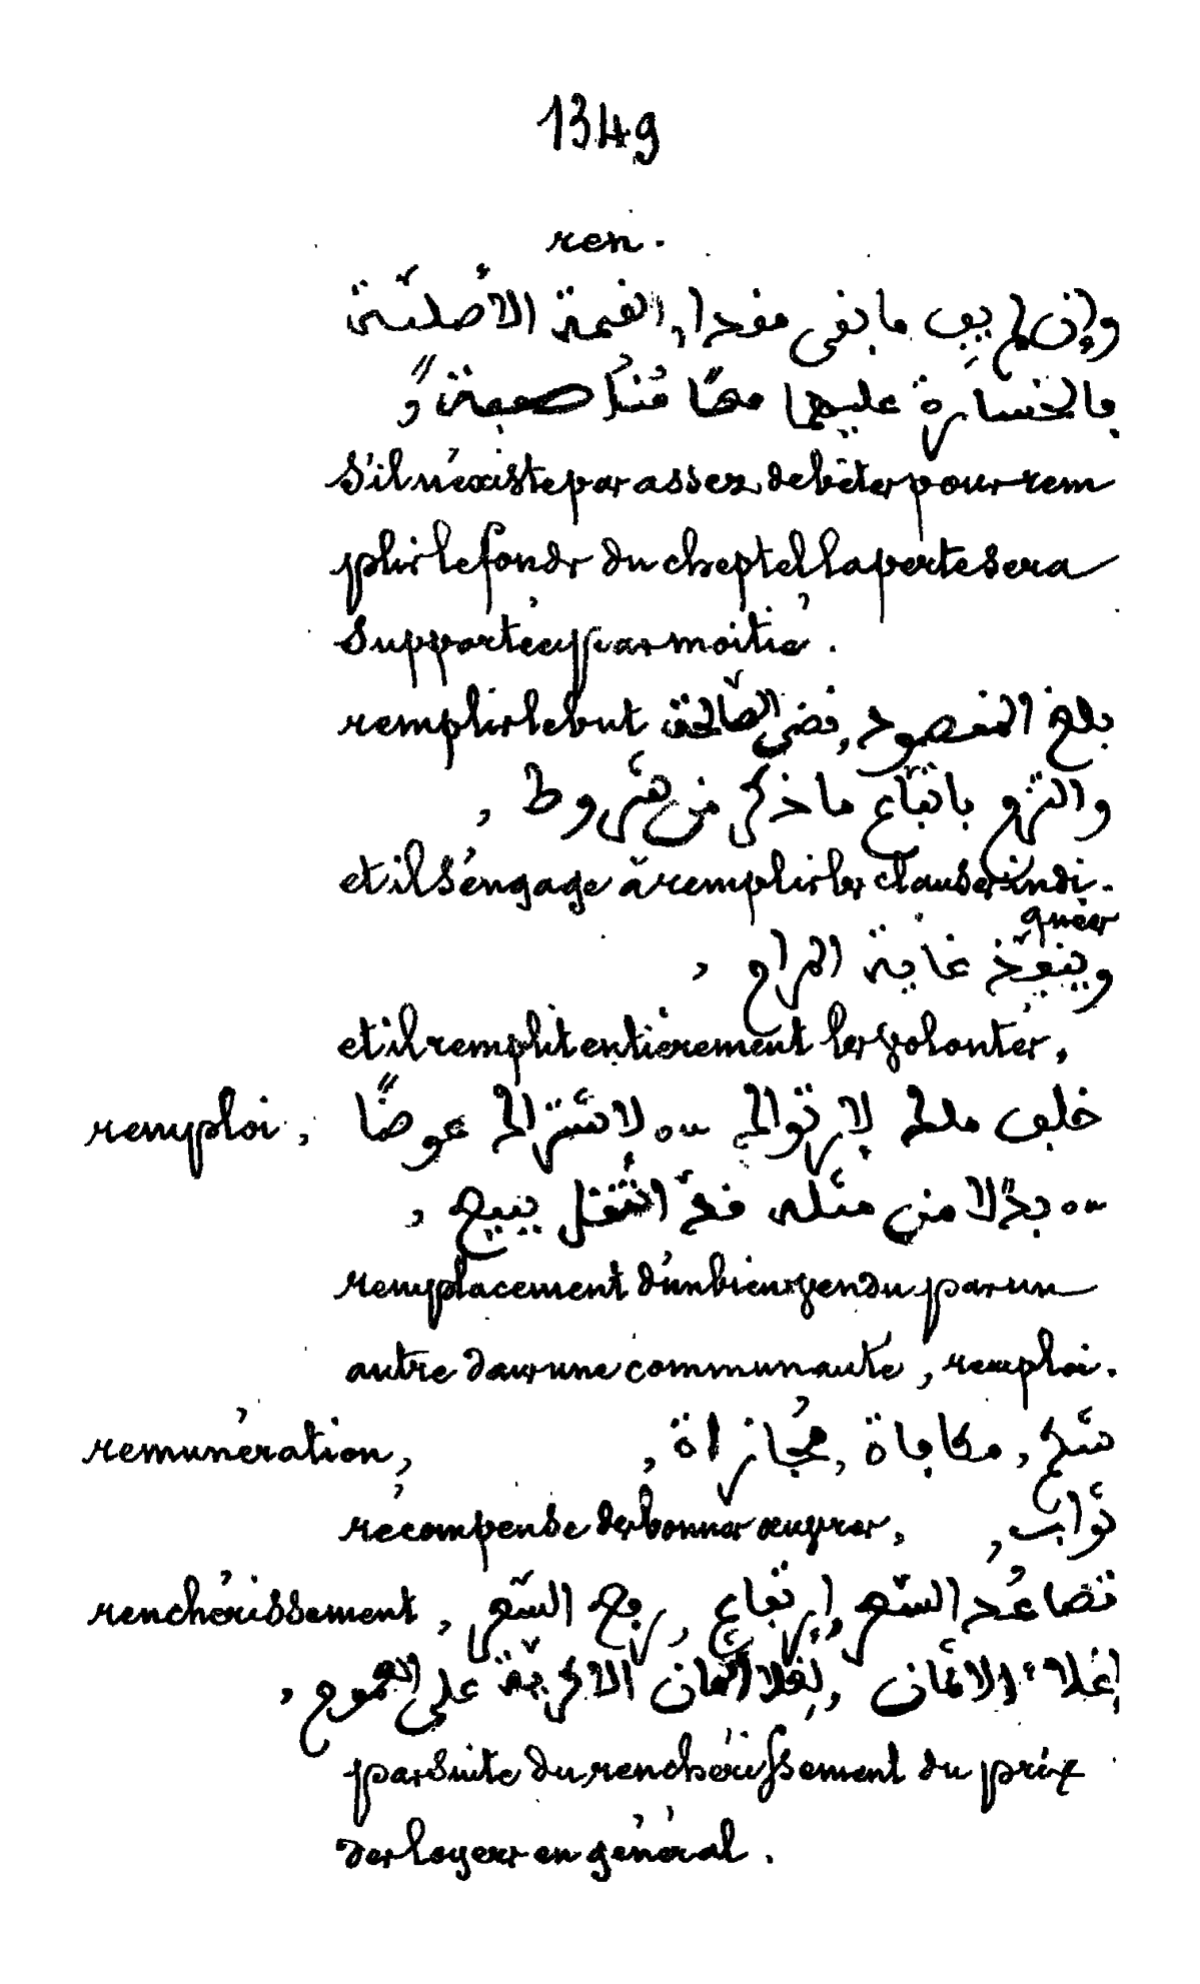 1349
ren.
وإن لم يف ما بقى مقدار القيمة الأصليّة
فالخسارة عليهما معًا مُنَاصفة،
S'il n'existe pas assez de bêtes pour rem
plir le fonds du cheptel la perte sera
supportée par moitié.
remplir le but بلغ المقصود, قضى الصّالحة
والتزم باتّباع ما ذكر من شروط,
et il s'engage à remplir les clauses indi-
quées
وينفّذ غاية المرام,
et il remplit entièrement les volontés,
remploi, خلف ملك لا شتراك عوضًا
بدلا من مثله قد انتقل ببيع,
remplacement d'un bien vendu par un
autre dans une communauté, remploi.
rémunération, شكر, مكافاة, مُجازاة,
récompense des bonnes œuvres, ثواب,
renchérissement, تصاعُد السّعر, إرتفاع, رفع السّعر,
إغلاء الاثمان, لغلا أثمان الاكرية على العموم,
par suite du renchérissement du prix
des loyers en général.